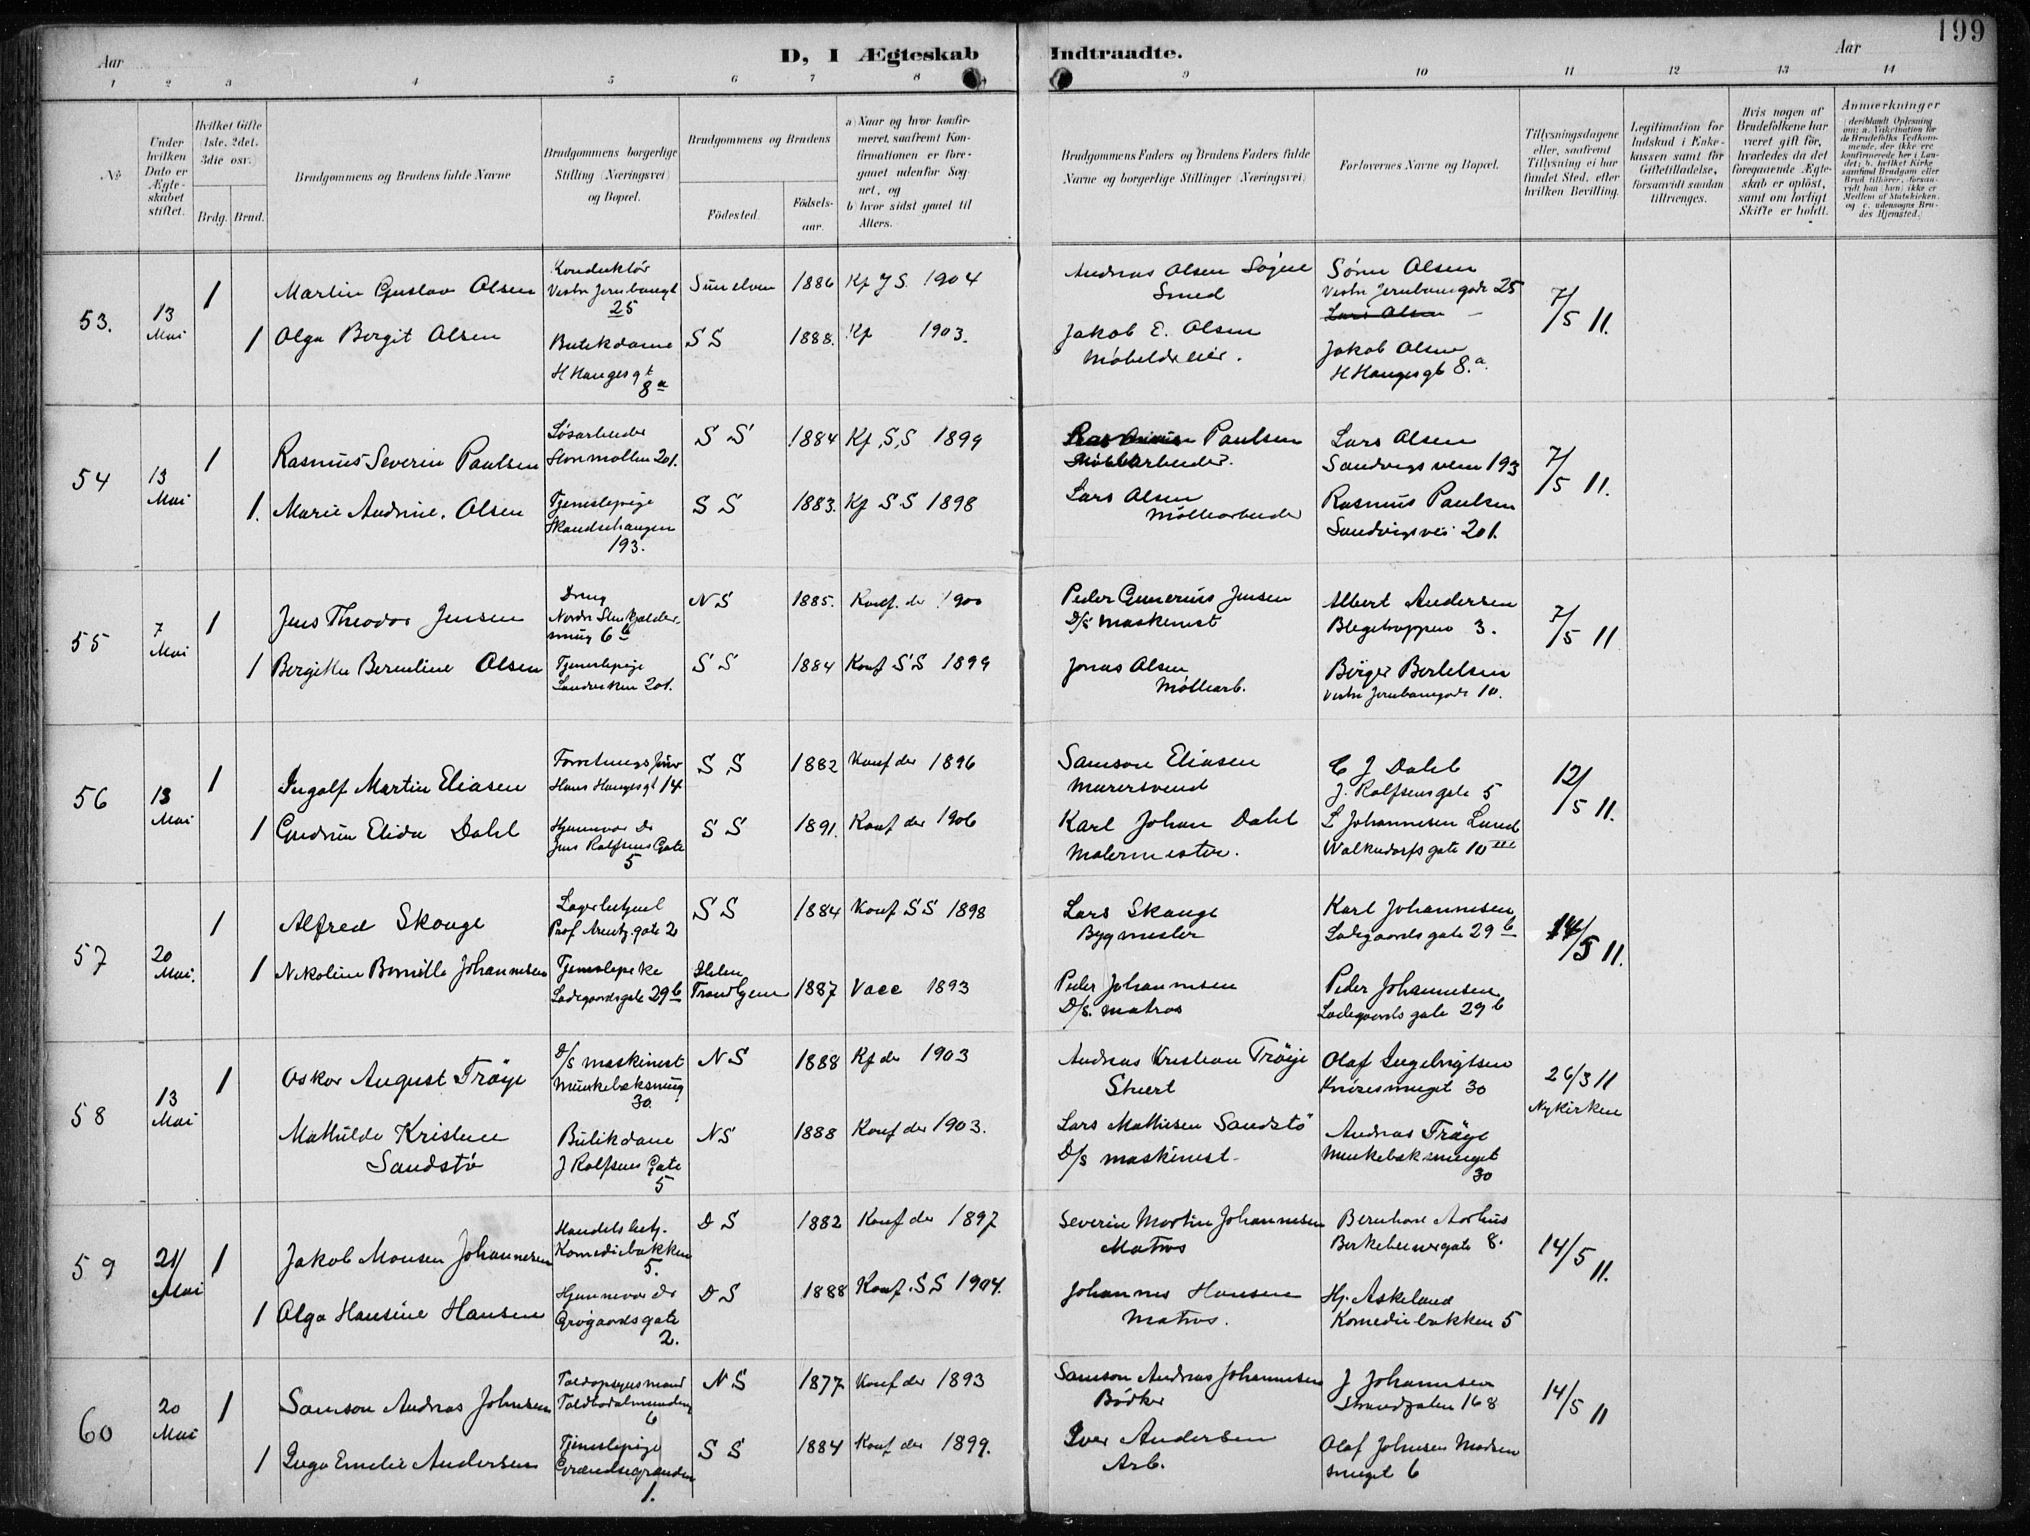 199
D, I Ægteskab Indtraadte.
Aar Aar
1 2 3 4 5 6 7 8 9 10 11 12 13 14
No
Under hvilken Dato er Ægteskabet stiftet.
Hvilket Gifte (1ste, 2det, 3die osv.)
Brdg. Brud.
Brudgommens og Brudens fulde Navne
Brudgommens borgerlige Stilling (Næringsvei) og Bopæl.
Brudgommens og Brudens
Födested. Födsels-aar.
a) Naar og hvor konfirmeret, saafremt Konfirmationen er foregaaet udenfor Sognet, og
b) hvor sidst gaaet til Alters.
Brudgommens Faders og Brudens Faders fulde Navne og borgerlige Stillinger (Næringsvei)
Forlovernes Navne og Bopæl.
Tillysningsdagene eller, saafremt Tillysning ei har fundet Sted, efter hvilken Bevilling.
Legitimation for Indskud i Enkekassen samt for Giftetilladelse, forsaavidt saadan tiltrænges.
Hvis nogen af Brudefolkene har været gift för, hvorledes da det foregaaende Ægteskab er oplöst, samt om lovligt Skifte er holdt.
Anmærkninger
(deriblandt Oplysning om: a. Vakcination for de Brudefolks Vedkommende, der ikke ere konfirmerede her i Landet; b. hvilket Kirkesamfund Brudgom eller Brud tilhörer, forsaavidt han (hun) ikke er Medlem af Statskirken, og c. udensogns Brudes Hjemsted.)
53. 13 Mai 1 Martin Gustav Olsen Konduktör Vestre Jernbanegt 25 1886 Kf JS 1904 Andreas Olsen Sogne Smed Sören Olsen Vestre Jernbanegade 25 7/5 11.
1 Olga Bergit Olsen Butikdame H Haugesgt 8a SS 1888. Kf 1903. Jakob E. Olsen Möbeldreier. Jakob Olsen H Haugesgt 8.a
54 13 Mai 1 Rasmus Severin Paulsen Løsarbeider Storemøllen 201. SS 1884 Kf SS 1899 Paulsen Møllearbeider. Lars Olsen Sandvigsveien 193 7/5 11.
1. Marie Andrine. Olsen Tjenestepige Skandsehaugen 193. SS 1883. Kf SS 1898 Lars Olsen Møllearbeider Rasmus Paulsen Sandvigsvei 201.
55 7 Mai 1 Jens Theodor Jensen Dreng Nordre Stenkjeldersmug 6b NS 1885. Konf. der 1900 Peder Gunerius Jensen D/S maskinist Albert Andersen Blegetrappen 3. 7/5 11
1 Bergitha Berntine Olsen Tjenestepige Sandviken 201. SS 1884 Konf SS 1899 Jonas Olsen Møllearb. Börger Bertelsen Vestre Jernbanegade 10.
56 13 Mai 1 Ingolf Martin Eliasen Hans Haugesgt 14 SS 1882 Konf der 1896 Samson Eliasen Murersvend C J Dahl J. Rolfsensgate 5 12/5 11.
1 Gudrun Elida Dahl Hjemmev. Dr Jens Rolfsens Gate 5 SS 1891. Konf der 1906 Karl Johan Dahl Malermester. L Johannesen Lund Walkendorfsgate 10 III
57 20 Mai. 1 Alfred Skauge Lagerbetjent Prof Arentz gate 2 SS 1884 Konf SS 1898 Lars Skauge Bygmester Karl Johannesen Ladegaardsgate 29b 14/5 11.
1 Nikoline Bernille Johannesen Ladegaardsgate 29b Trondhjem 1887 Vacc 1893 Peder Johannesen D/S. matros Peder Johannesen Ladegaardsgate 29b
58 13 Mai 1 Oskar August Tröye D/S maskinist Munkebæksmug 30. NS 1888 Kf der 1903 Andreas Kristian Tröije Stuert Olaf Ingebrigtsen Knösesmuget 30 26/3 11 Nykirken
Mathilde Kristine Sandstö Butikdame J Rolfsens Gate 5 NS 1888 Konf der 1903. Lars Mathiesen Sandstö D/S maskinist Andreas Tröye Munkebæksmuget 30
59 21 Mai 1 Jakob Monsen Johannesen Handelsbetj. Komediebakken 5. DS 1882 Konf der 1897 Severin Martin Johannesen Matros Bernhard Aarhus Birkebeinergate 8. 14/5 11.
1 Olga Hansine Hansen Hjemmev. Dr Grögaardsgate 2. DS 1888 Konf. SS 1904. Johannes Hansen Matros. Hj. Askeland Komediebakken 5
60 20 Mai 1 Samson Andreas Johnsen Toldopsynsmand Toldbodalmending 6 NS 1877 Konf der 1893 Samson Andreas Johannesen Bödker J Johannesen Strandgaten 168 14/5 11
1 Inga Emelie Andersen Tjenestepige Grændsegranden 1. SS 1884 Konf der 1899. Iver Andersen Arb. Olaf Johnsen Madsensmuget 6